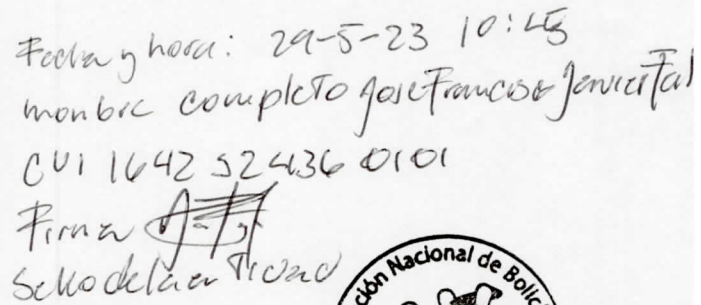 Fecha y hora: 29-5-23 10:45
Nombre completo Jose Francisco Javier Tal
CUI 1642 52436 0101
Firma
Sello de la entidad
ción Nacional de Bolic